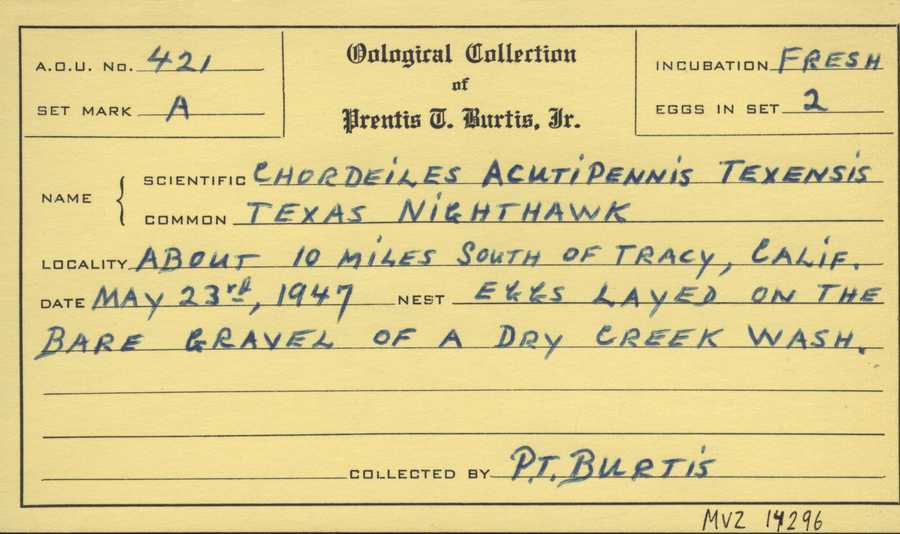 A.O.U. No. 421
SET MARK A
Oological Collection
of
Prentis T. Burtis, Jr.
INCUBATION FRESH
EGGS IN SET 2
NAME
SCIENTIFIC CHORDEILES ACUTIPENNIS TEXENSIS
COMMON TEXAS NIGHTHAWK
LOCALITY ABOUT 10 MILES SOUTH OF TRACY, CALIF.
DATE MAY 23rd, 1947 NEST EGGS LAYED ON THE
BARE GRAVEL OF A DRY CREEK WASH.
COLLECTED BY P.T. BURTIS
MVZ 14296